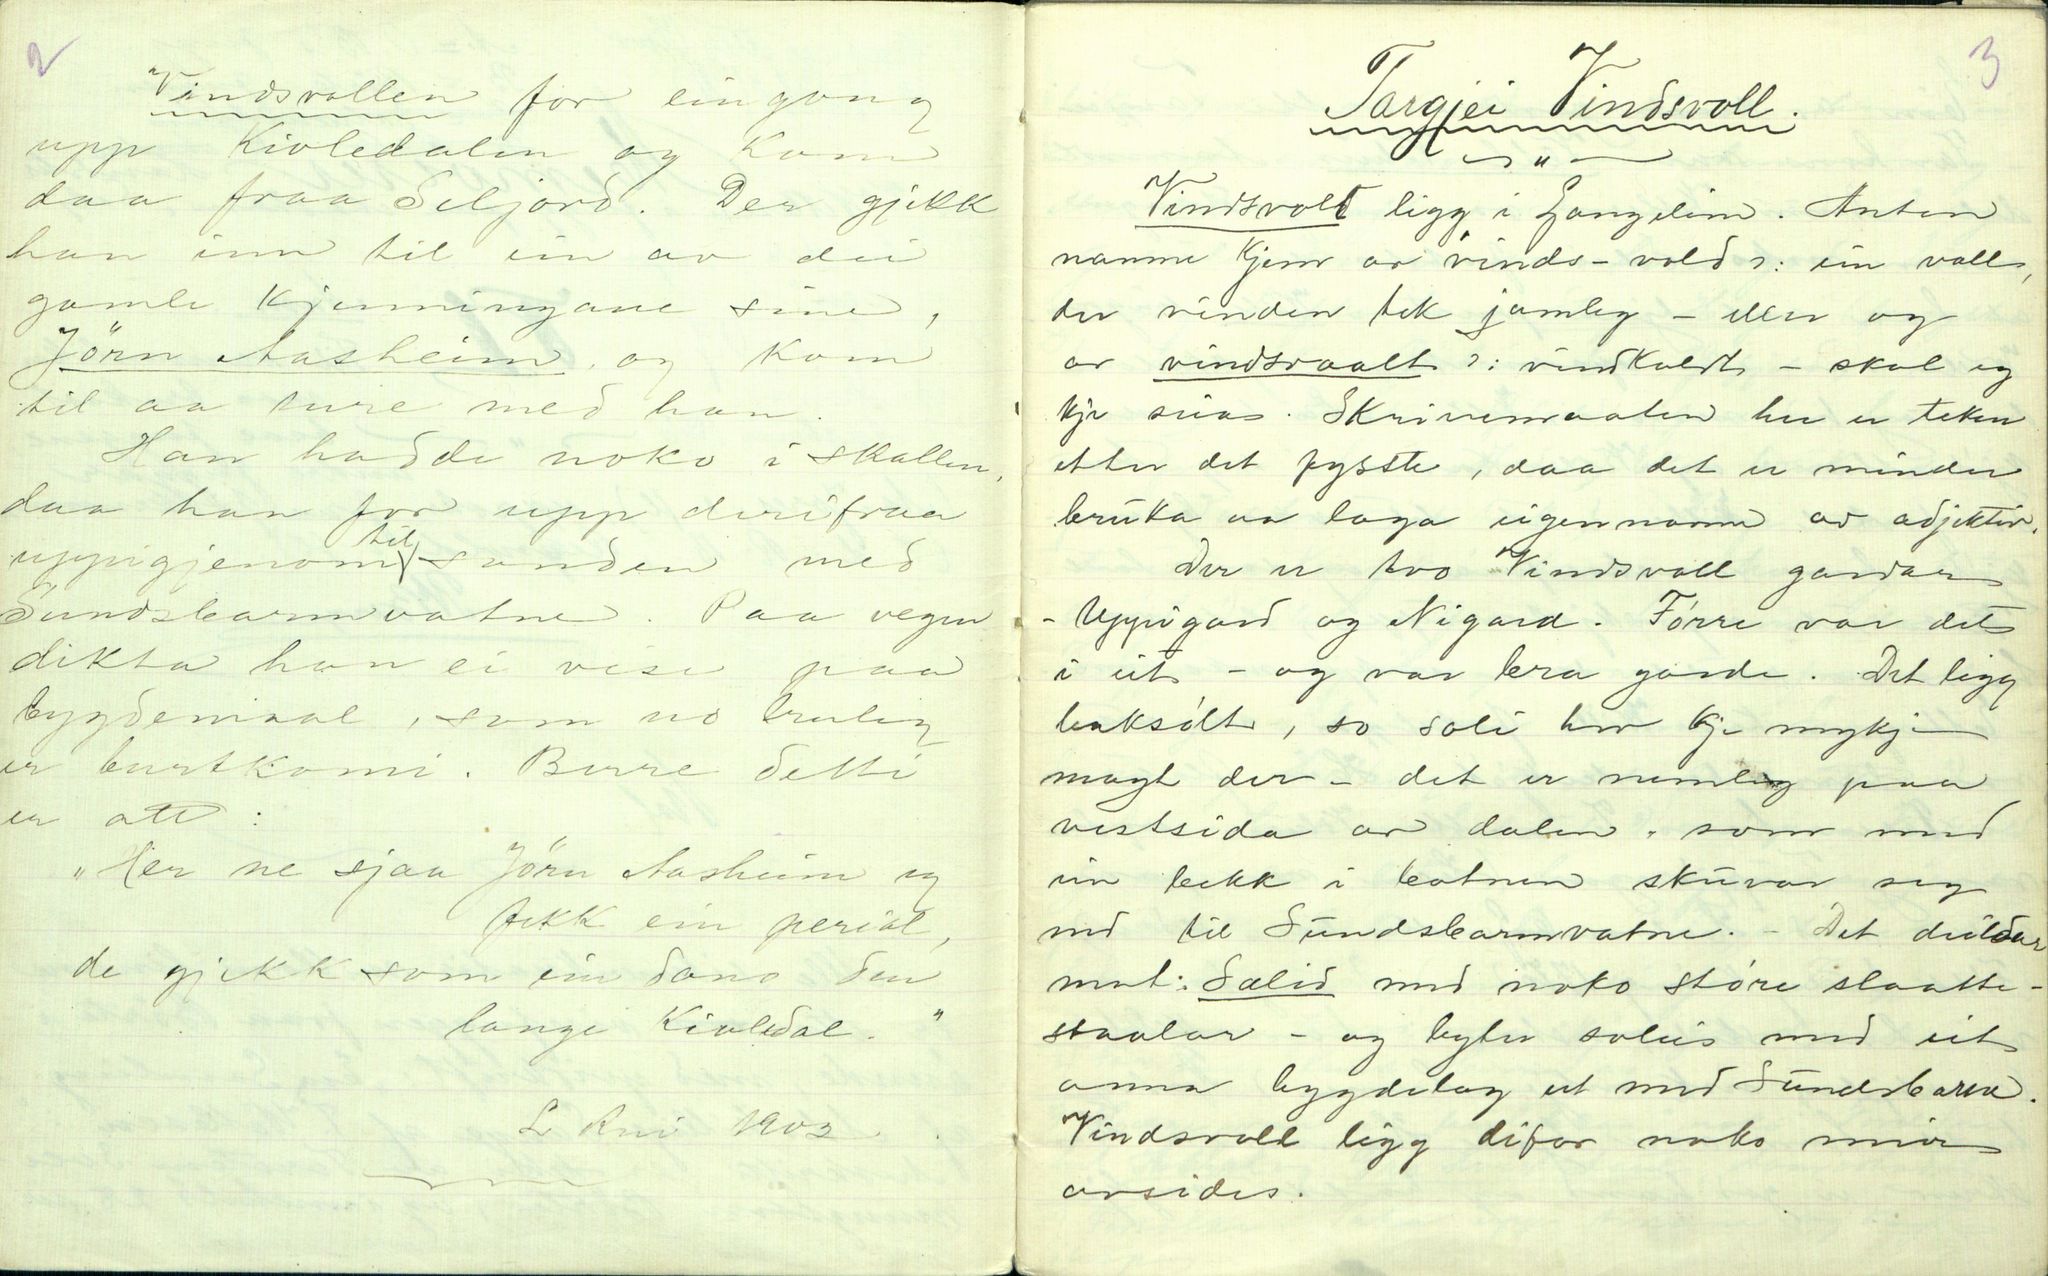 2
Vindsvollen for eingong
upp Kivledalen og kom
daa fraa Seljord. Der gjekk
han inn til ein av dei
gamle kjenningane sine,
Jörn Aasheim, og kom
til aa ture med han.
Han hadde noko i skallen,
daa han for upp derifraa
uppigjenom til sanden med
Sundsbarmvatne. Paa vegen
dikta han ei vise paa
bygdemaal, som no truleg
er burtkomi. Berre detti
er att:
"Her ne sjaa Jörn Aasheim eg
fekk ein perial,
de gjekk som ein dans den
lange Kivledal."
L 1903
3
Targjei Vindsvoll.
"
Vindsvoll ligg i Langelim. Anten
namne kjem av vinds-vold ɔ: ein voll,
der vinden tek jamleg - eller og
av vindsvaalt ɔ: vindkaldt - skal eg
kje seia. Skrivemaaten her er teken
etter det fysste, daa det er minder
bruka aa laga eigennamn av adjektiv.
Der er tvo Vindsvoll gardar
- Uppigard og Nigard. Förre var det
i eit - og var bra garde. Det ligg
baksölt, so soli hev kje mykje
magt der - det er nemleg paa
vestsida av dalen, som med
ein bekk i botnen skuvar seg
ned til Sundsbarmvatne. - Det deildar
mot: Sælid med noko störe slaatte-
staalar - og byter soleis med eit
anna bygdelag ut med Sundsbarm.
Vindsvoll ligg difor noko meir
avsides.